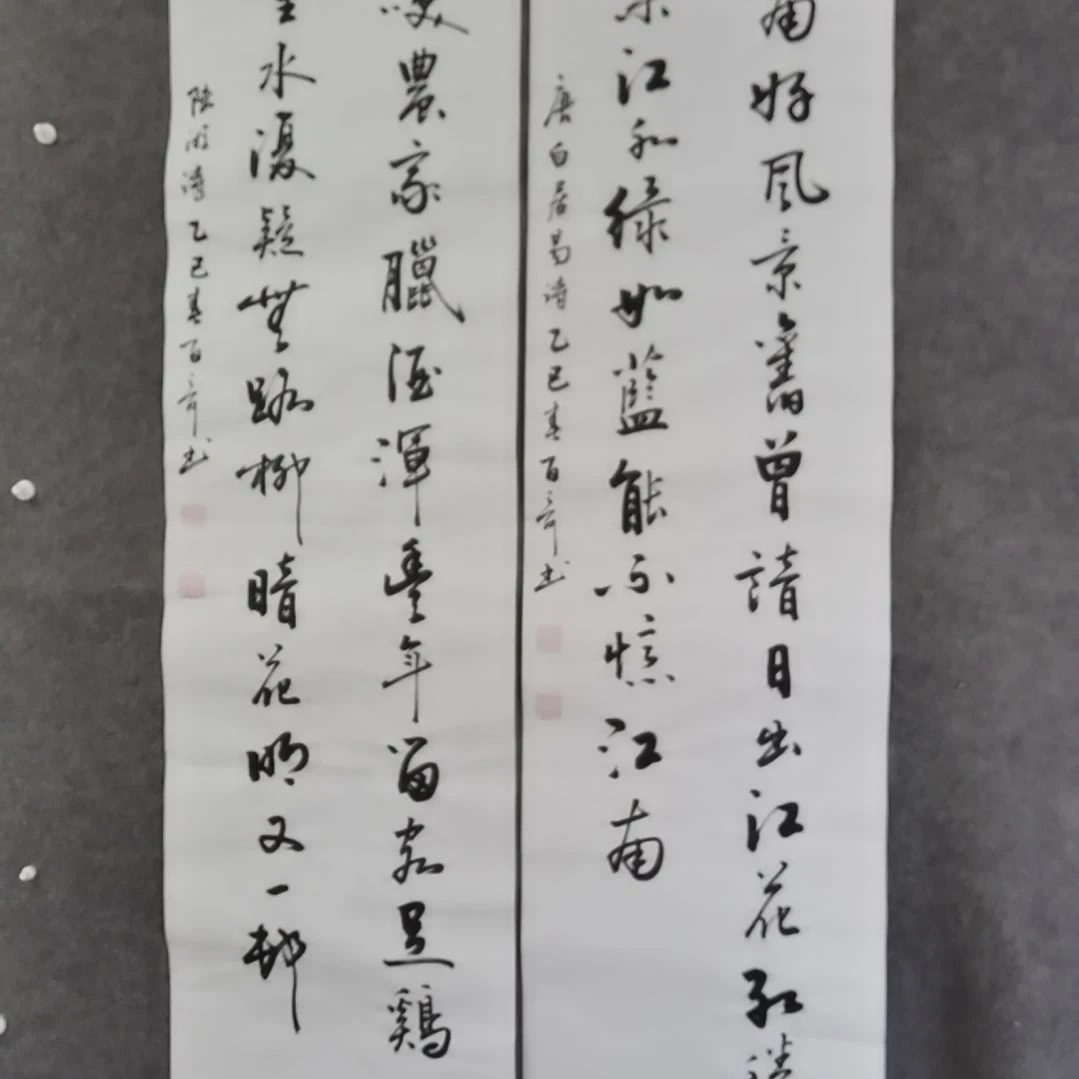 南好風景舊曾諳日出江花紅勝
來江水綠如藍能不憶江南
唐白居易詩乙巳春百奇書
笑農家臘酒渾豐年留客足鷄
水復疑無路柳暗花明又一邨
陸游詩乙巳春百奇書